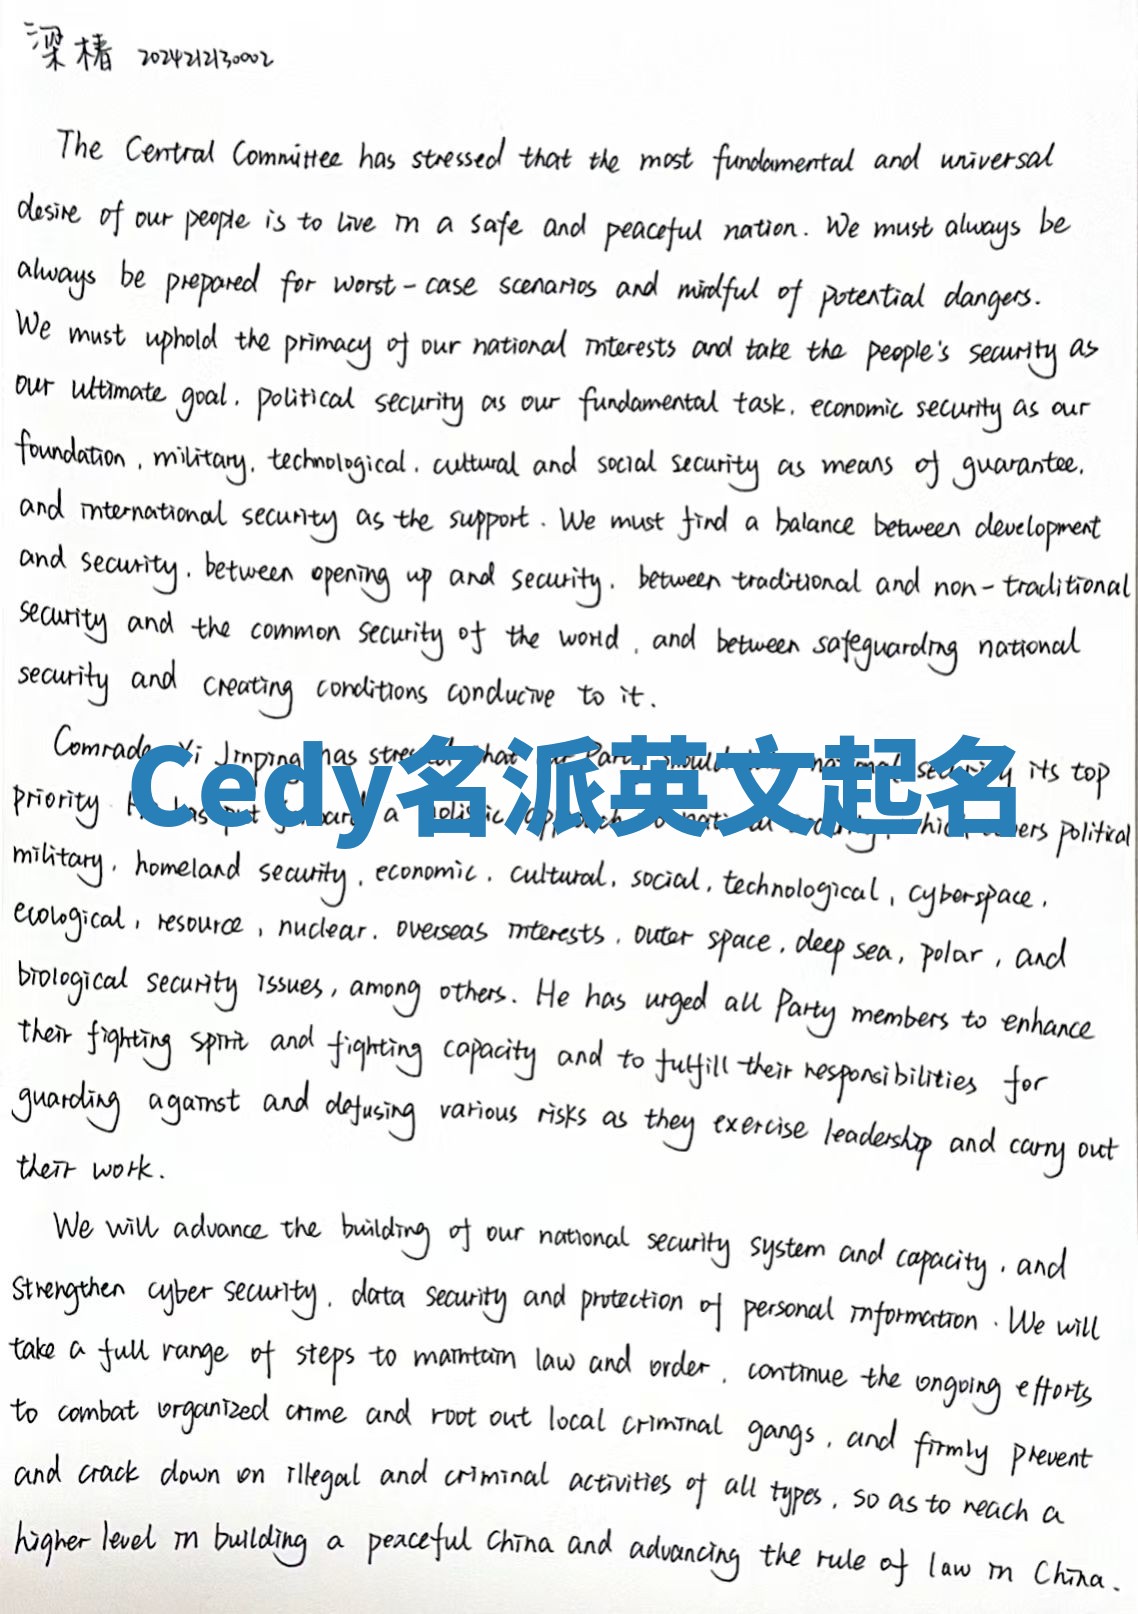 梁椿 2024212130002
The Central Committee has stressed that the most fundamental and universal
desire of our people is to live in a safe and peaceful nation. We must always be
always be prepared for worst-case scenarios and mindful of potential dangers.
We must uphold the primacy of our national interests and take the people's security as
our ultimate goal, political security as our fundamental task, economic security as our
foundation, military, technological, cultural and social security as means of guarantee,
and international security as the support. We must find a balance between development
and security, between opening up and security, between traditional and non-traditional
security and the common security of the world, and between safeguarding national
security and creating conditions conducive to it.
Comrade Xi Jinping has stressed that Party should national security its top
Cedy名派英文起名
priority has put forward a holistic approach national political
military, homeland security, economic, cultural, social, technological, cyberspace,
ecological, resource, nuclear, overseas interests, outer space, deep sea, polar, and
biological security issues, among others. He has urged all Party members to enhance
their fighting spirit and fighting capacity and to fulfill their responsibilities for
guarding against and defusing various risks as they exercise leadership and carry out
their work.
We will advance the building of our national security system and capacity, and
strengthen cyber security, data security and protection of personal information. We will
take a full range of steps to maintain law and order, continue the ongoing efforts
to combat organized crime and root out local criminal gangs, and firmly prevent
and crack down on illegal and criminal activities of all types, so as to reach a
higher level in building a peaceful China and advancing the rule of law in China.